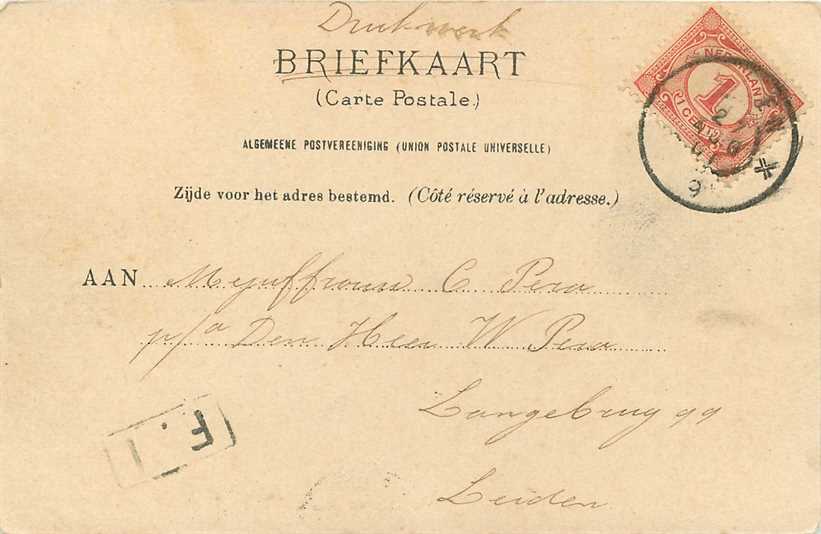 Drukwerk
BRIEFKAART
(Carte Postale.)
NEDERLAND
1
1 CENT
ALGEMEENE POSTVEREENIGING (UNION POSTALE UNIVERSELLE)
Zijde voor het adres bestemd. (Côté réservé à l'adresse.)
AAN Mejuffrouw C. Pera
p/a Den Heer W Pera
Langebrug 99
Leiden
F.